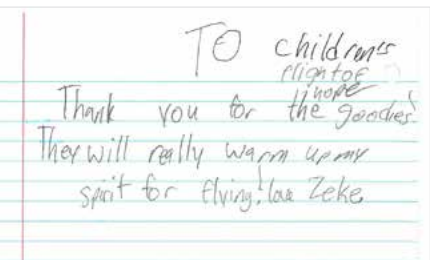 TO children's
flight of
hope
Thank you for the goodies!
They will really warm up my
spirit for flying! love Zeke